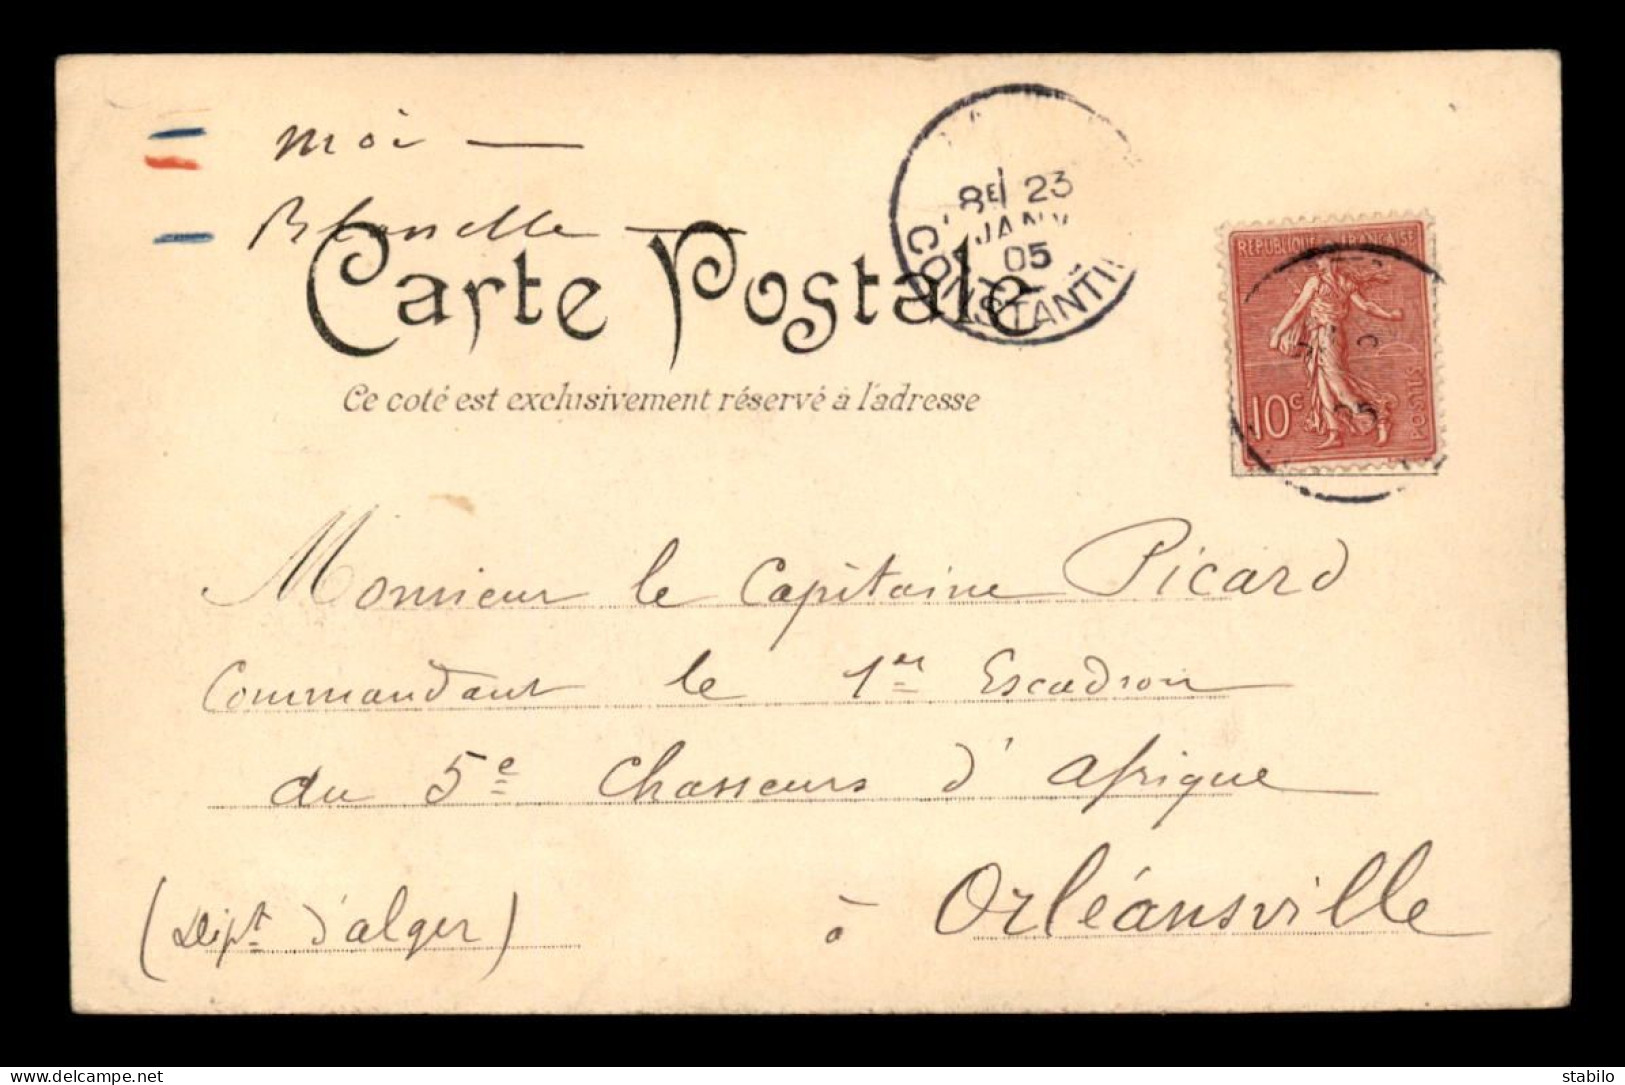 moi —
Carte Postale
Ce coté est exclusivement réservé à l'adresse
8E 23
JANV
05
CONSTANTI
REPUBLIQUE FRANÇAISE
10c
POSTES
05
Monsieur le Capitaine Picard
Commandant le 1er Escadron
du 5e Chasseurs d'Afrique
à Orléansville
(Dépt d'alger)
stabilo
https://www.delcampe.net